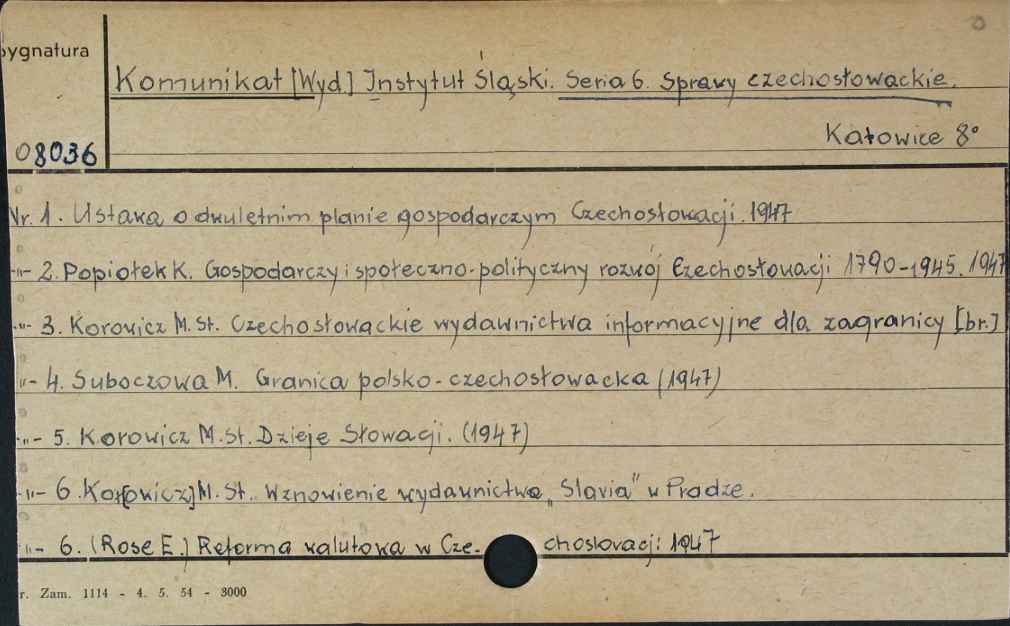 Sygnatura
Komunikat [Wyd.] Instytut Śląski. Seria 6. Sprawy czechosłowackie.
Katowice 8°
08036
Nr. 1. Ustawa o dwuletnim planie gospodarczym Czechosłowacji. 1947
-"- 2. Popiołek K. Gospodarczy i społeczno-polityczny rozwój Czechosłowacji 1790-1945. 1947
-"- 3. Korowicz M. St. Czechosłowackie wydawnictwa informacyjne dla zagranicy [br.]
-"- 4. Suboczowa M. Granica polsko-czechosłowacka (1947)
-"- 5. Korowicz M. St. Dzieje Słowacji. (1947)
-"- 6. Kor[owicz] M. St. Wznowienie wydawnictwa „Slavia" w Pradze.
-"- 6. (Rose E.) Reforma walutowa w Cze. choslowacji 1947
r. Zam. 1114 - 4. 5. 54 - 3000